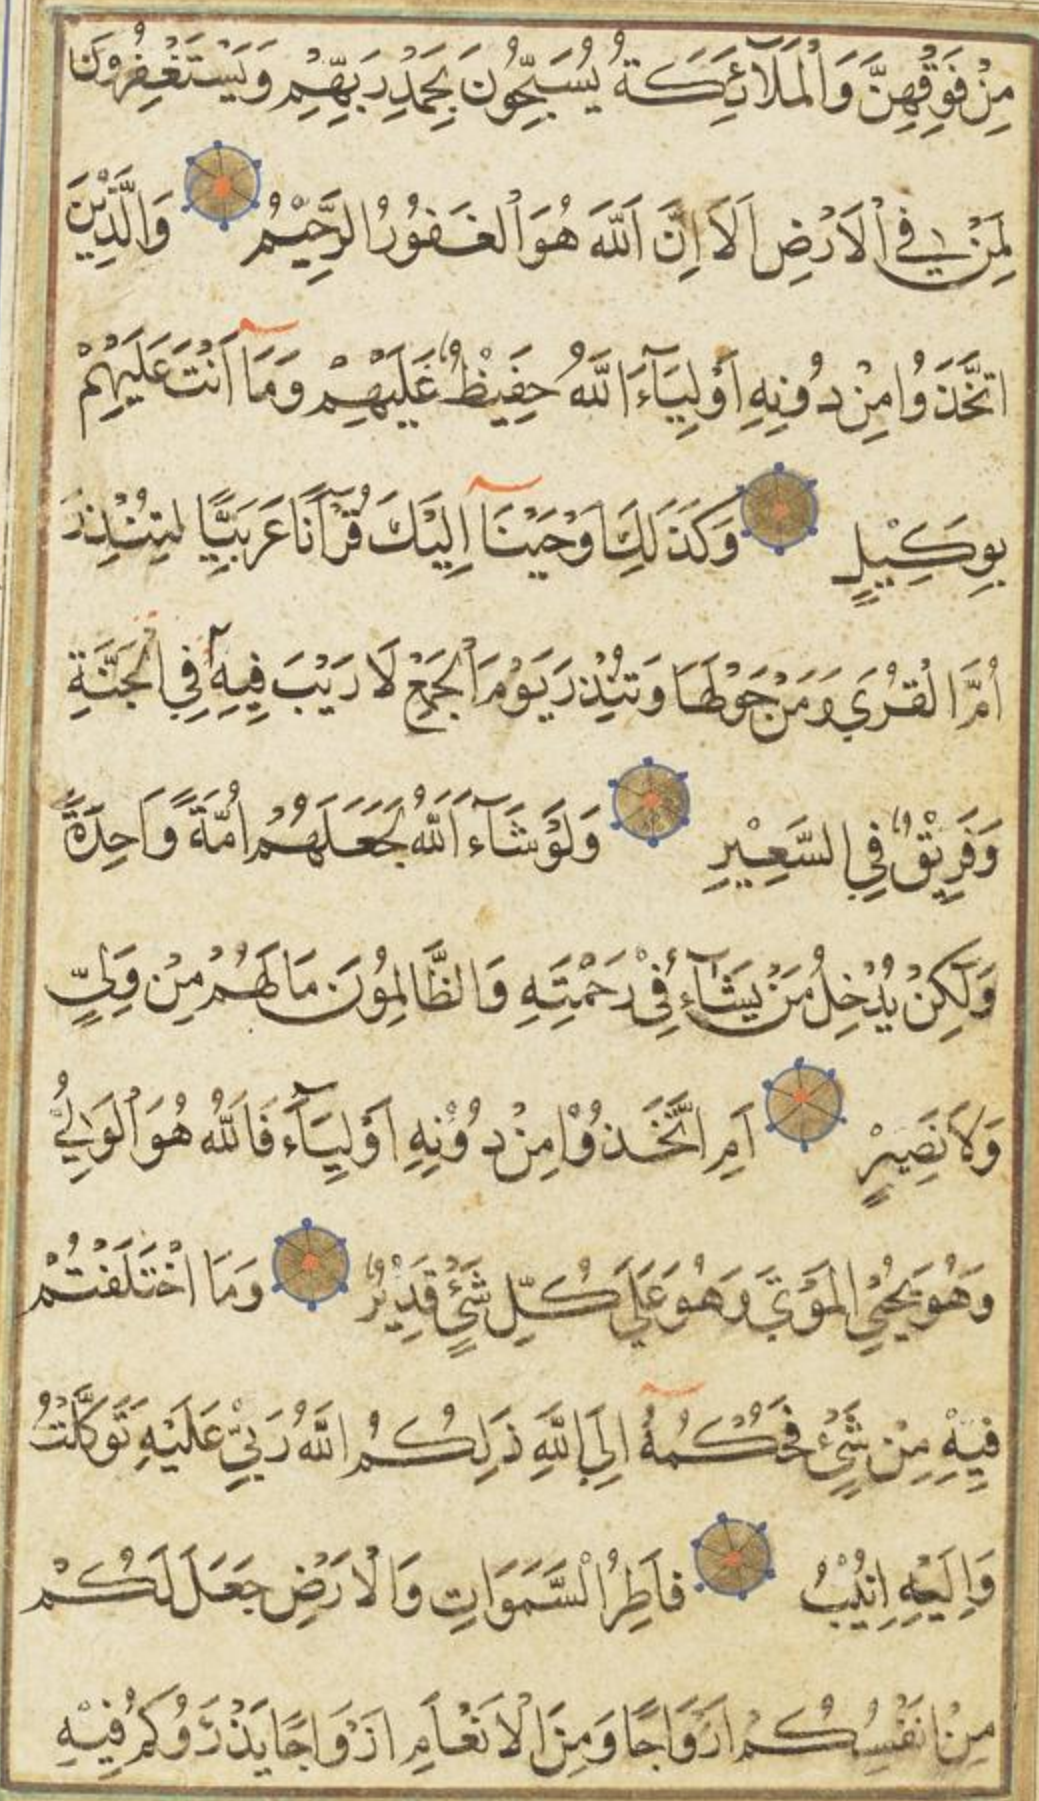 مِنْ فَوْقِهِنَّ وَالْمَلَآئِكَةُ يُسَبِّحُونَ بِحَمْدِ رَبِّهِمْ وَيَسْتَغْفِرُونَ
لِمَنْ فِي الْاَرْضِ اَلَا اِنَّ اللّٰهَ هُوَ الْغَفُورُ الرَّحِيْمُ وَالَّذِيْنَ
اتَّخَذُوا مِنْ دُونِهِ اَوْلِيَآءَ اللّٰهُ حَفِيْظٌ عَلَيْهِمْ وَمَآ اَنْتَ عَلَيْهِمْ
بِوَكِيْلٍ وَكَذَلِكَ اَوْحَيْنَآ اِلَيْكَ قُرْآنًا عَرَبِيًّا لِتُنْذِرَ
اُمَّ الْقُرٰى وَمَنْ حَوْلَهَا وَتُنْذِرَ يَوْمَ الْجَمْعِ لَا رَيْبَ فِيهِ فِي الْجَنَّةِ
وَفَرِيْقٌ فِي السَّعِيْرِ وَلَوْ شَآءَ اللّٰهُ لَجَعَلَهُمْ اُمَّةً وَاحِدَةً
وَلٰكِنْ يُدْخِلُ مَنْ يَشَآءُ فِي رَحْمَتِهِ وَالظَّالِمُونَ مَا لَهُمْ مِنْ وَلِيٍّ
وَلَا نَصِيْرٍ اَمِ اتَّخَذُوْا مِنْ دُوْنِهِ اَوْلِيَآءَ فَاللّٰهُ هُوَ الْوَلِيُّ
وَهُوَ يُحْيِ الْمَوْتٰى وَهُوَ عَلٰى كُلِّ شَيْءٍ قَدِيْرٌ وَمَا اخْتَلَفْتُمْ
فِيْهِ مِنْ شَيْءٍ فَحُكْمُهُ اِلَى اللّٰهِ ذٰلِكُمُ اللّٰهُ رَبِّيْ عَلَيْهِ تَوَكَّلْتُ
وَاِلَيْهِ اُنِيْبُ فَاطِرُ السَّمَوَاتِ وَالْاَرْضِ جَعَلَ لَكُمْ
مِنْ اَنْفُسِكُمْ اَزْوَاجًا وَمِنَ الْاَنْعَامِ اَزْوَاجًا يَذْرَؤُكُمْ فِيْهِ